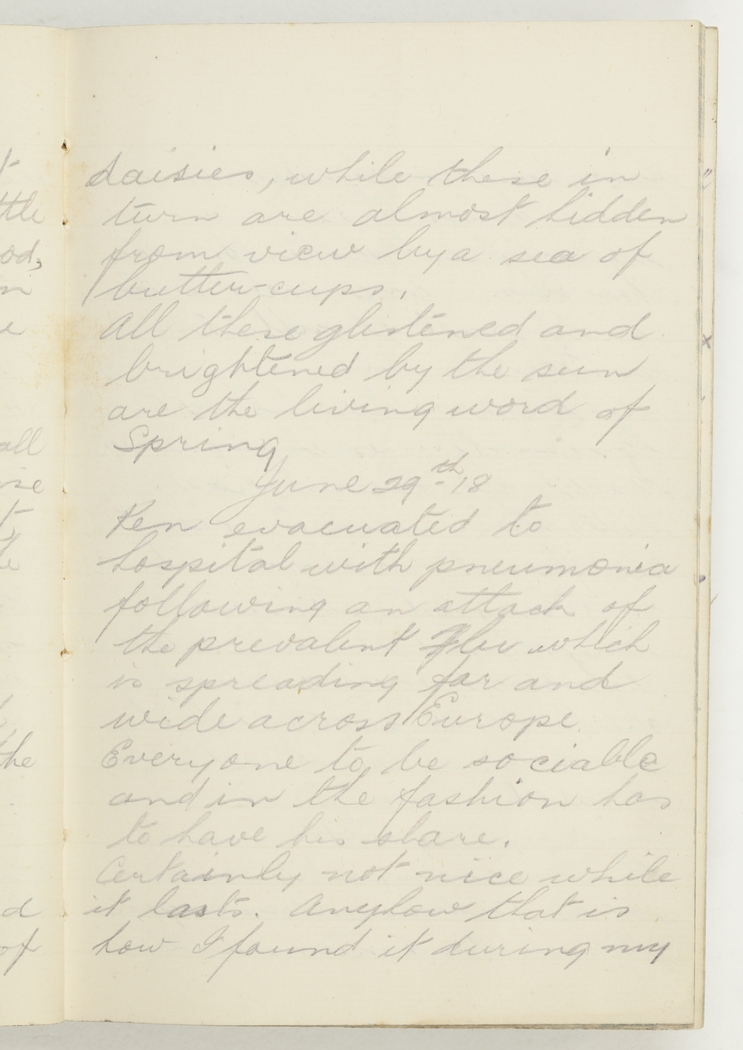 daisies, while these in
turn are almost hidden
from view by a sea of
butter-cups.
All these glistened and
brightened by the sun
are the living word of
Spring
June 29th 18
Ken evacuated to
hospital with pneumonia
following an attack of
the prevalent Flu which
is spreading far and
wide across Europe.
Everyone to be sociable
and in the fashion has
to have his share.
Certainly not nice while
it lasts. Anyhow that is
how I found it during my